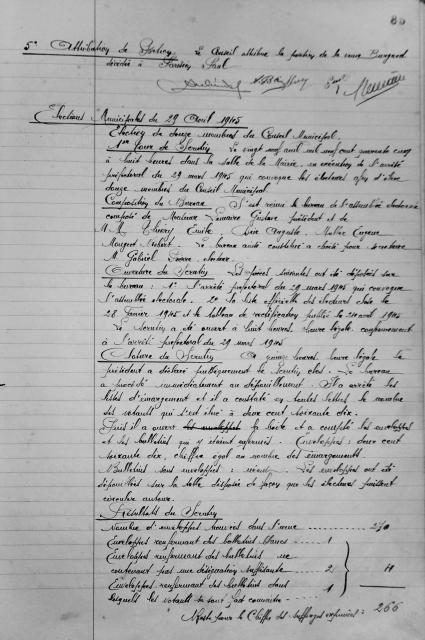 86
5° Attribution de Portion. Le Conseil attribue la portion de la veuve
décédée à
Elections Municipales du 29 Avril 1945
Election de douze membres du Conseil Municipal.
1er Tour de Scrutin Le vingt neuf avril mil neuf cent quarante cinq
à huit heures dans la salle de la Mairie, en exécution de l'arrêté
préfectoral du 29 mars 1945 qui convoque les électeurs afin d'élire
douze membres du Conseil Municipal
Composition du Bureau S'est réuni le bureau de l'assemblée électorale
composé de Monsieur Lemaire Gustave président et de
M M. Thierry Emile, Auguste, Eugène
Mougeot Robert. Le bureau ainsi constitué a choisi pour secrétaire
M. Gabriel Pierre, électeur.
Ouverture du Scrutin Les pièces suivantes ont été déposées sur
le bureau : 1° L'arrêté préfectoral du 29 mars 1945 qui convoque
l'assemblée électorale. 2° la liste officielle des électeurs close le
28 Février 1945 et le tableau de rectification publié le 24 avril 1945
Le Scrutin a été ouvert à huit heures, heure légale, conformément
à l'arrêté préfectoral du 29 mars 1945
Cloture du Scrutin A quinze heures, heure légale le
président a déclaré publiquement le Scrutin clos. Le bureau
a procédé immédiatement au dépouillement. Il a arrêté les
listes d'émargement et il a constaté en toutes lettres le nombre
des votants qui s'est élevé à deux cent soixante dix.
Puis il a ouvert la boite et a compté les enveloppes
et les bulletins qui y étaient enfermés. Enveloppes : deux cent
soixante dix, chiffre égal au nombre des émargements.
Bulletins sans enveloppes : néant. Les enveloppes ont été
dépouillées sur la table, disposée de façon que les électeurs puissent
circuler autour.
Résultats du Scrutin
Nombre d'enveloppes trouvées dans l'urne 270
Enveloppes renfermant des bulletins blancs 1
Enveloppes renfermant des bulletins ne
contenant pas une désignation suffisante 2
Enveloppes renfermant des bulletins dans 1
lesquels les votants se sont fait connaître
Reste pour le Chiffre des suffrages exprimés = 266